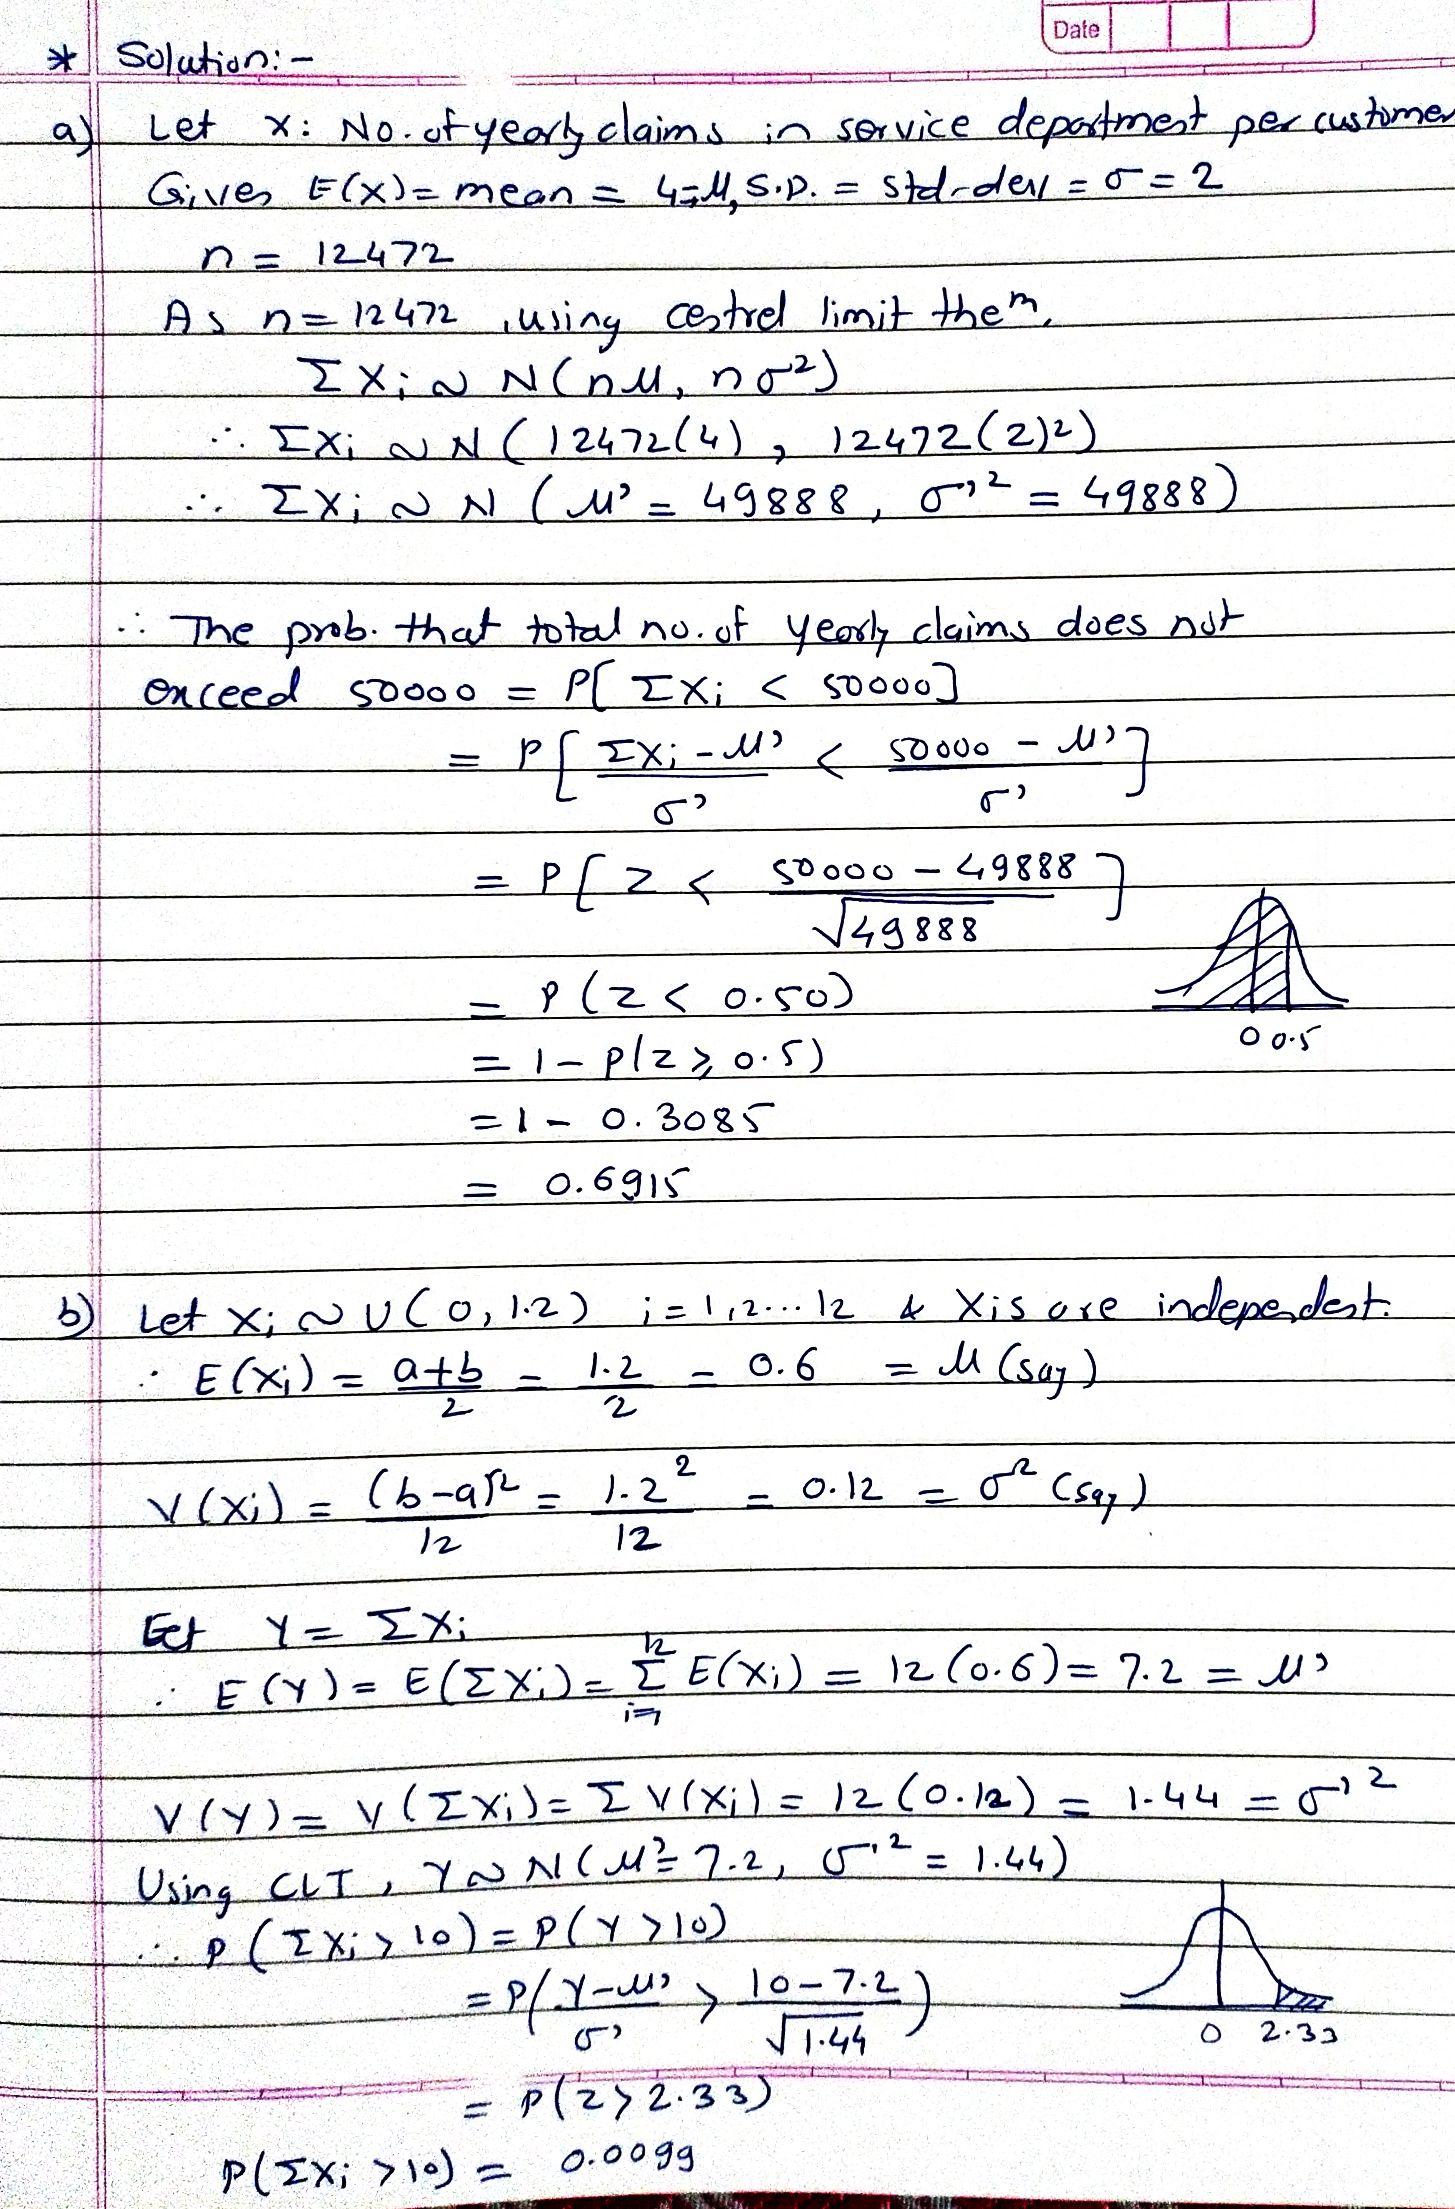 Date
* Solution:-
a) Let x: No. of yearly claims in service department per customer
Given E(X) = mean = 4 = μ, S.D. = std-dev = σ = 2
n = 12472
As n = 12472, using central limit them,
ΣXi ~ N(nμ, nσ²)
∴ ΣXi ~ N(12472(4), 12472(2)²)
∴ ΣXi ~ N(μ' = 49888, σ'² = 49888)
∴ The prob. that total no. of yearly claims does not
exceed 50000 = P[ΣXi < 50000]
= P[(ΣXi - μ')/σ' < (50000 - μ')/σ']
= P[Z < (50000 - 49888)/√49888]
= P(Z < 0.50)
0 0.5
= 1 - P(Z ≥ 0.5)
= 1 - 0.3085
= 0.6915
b) Let Xi ~ U(0, 1.2) i = 1,2...12 & Xis are independent.
∴ E(Xi) = (a+b)/2 = 1.2/2 = 0.6 = μ (say)
V(Xi) = (b-a)²/12 = 1.2²/12 = 0.12 = σ² (say)
Let Y = ΣXi
∴ E(Y) = E(ΣXi) = Σ_{i=1}^{12} E(Xi) = 12(0.6) = 7.2 = μ'
V(Y) = V(ΣXi) = ΣV(Xi) = 12(0.12) = 1.44 = σ'²
Using CLT, Y ~ N(μ' = 7.2, σ'² = 1.44)
∴ P(ΣXi > 10) = P(Y > 10)
= P((Y - μ')/σ' > (10 - 7.2)/√1.44)
0 2.33
= P(Z > 2.33)
P(ΣXi > 10) = 0.0099